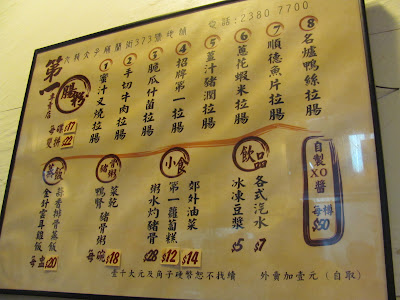 九龍太子砵蘭街373號地舖 電話:2380 7700
第一腸粉專賣店
每碟 $17
雙拼 22
1 蜜汁叉燒拉腸
2 手切牛肉拉腸
3 脆瓜什菌拉腸
4 招牌第一拉腸
5 薑汁豬潤拉腸
6 蔥花蝦米拉腸
7 順德魚片拉腸
8 名爐鴨絲拉腸
蒸飯
蒜香排骨蒸飯
金針雲耳雞飯
每盅 $20
豬骨粥
菜乾豬骨粥
鴨腎
每碗 $18
小食
郊外油菜 $14
第一蘿蔔糕 $12
粥水灼豬骨 $28
飲品
各式汽水 $7
冰凍豆漿 $5
自製XO醬
每樽 $50
大元及角子硬幣恕不找續 外賣加壹元(自取)